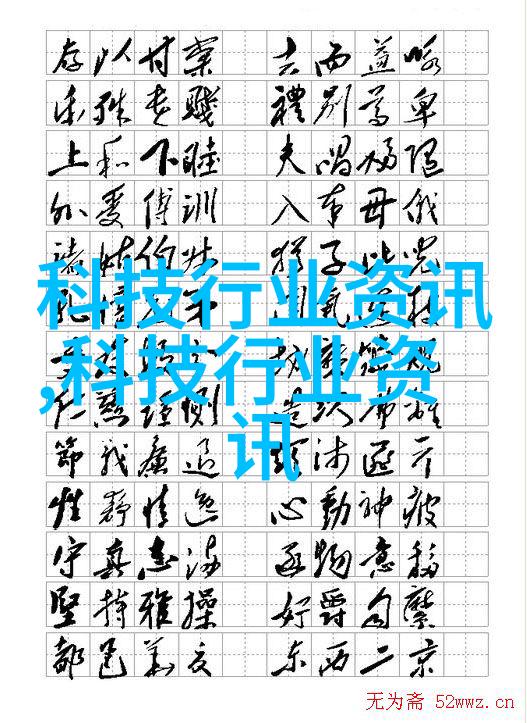 存以甘棠 去而益咏
乐殊贵賤 禮别尊卑
上和下睦 夫唱婦隨
外受傅訓 入奉母儀
諸姑伯叔 猶子比兒
科技行业资讯
,科技行业资
讯
節義廉退 顛沛匪亏
性靜情逸 心動神疲
守真志滿 逐物意移
堅持雅操 好爵自縻
都邑華夏 东西二京
无为斋 52wwz.cn